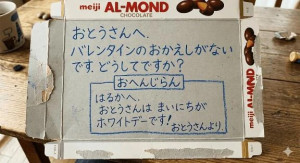 meiji AL-MOND
CHOCOLATE
おとうさんへ.
バレンタインのおかえしがない
です. どうしてですか?
おへんじらん
はるかへ.
おとうさんは まいにちが
ホワイトデーです!
おとうさんより.
meiji AL-MOND